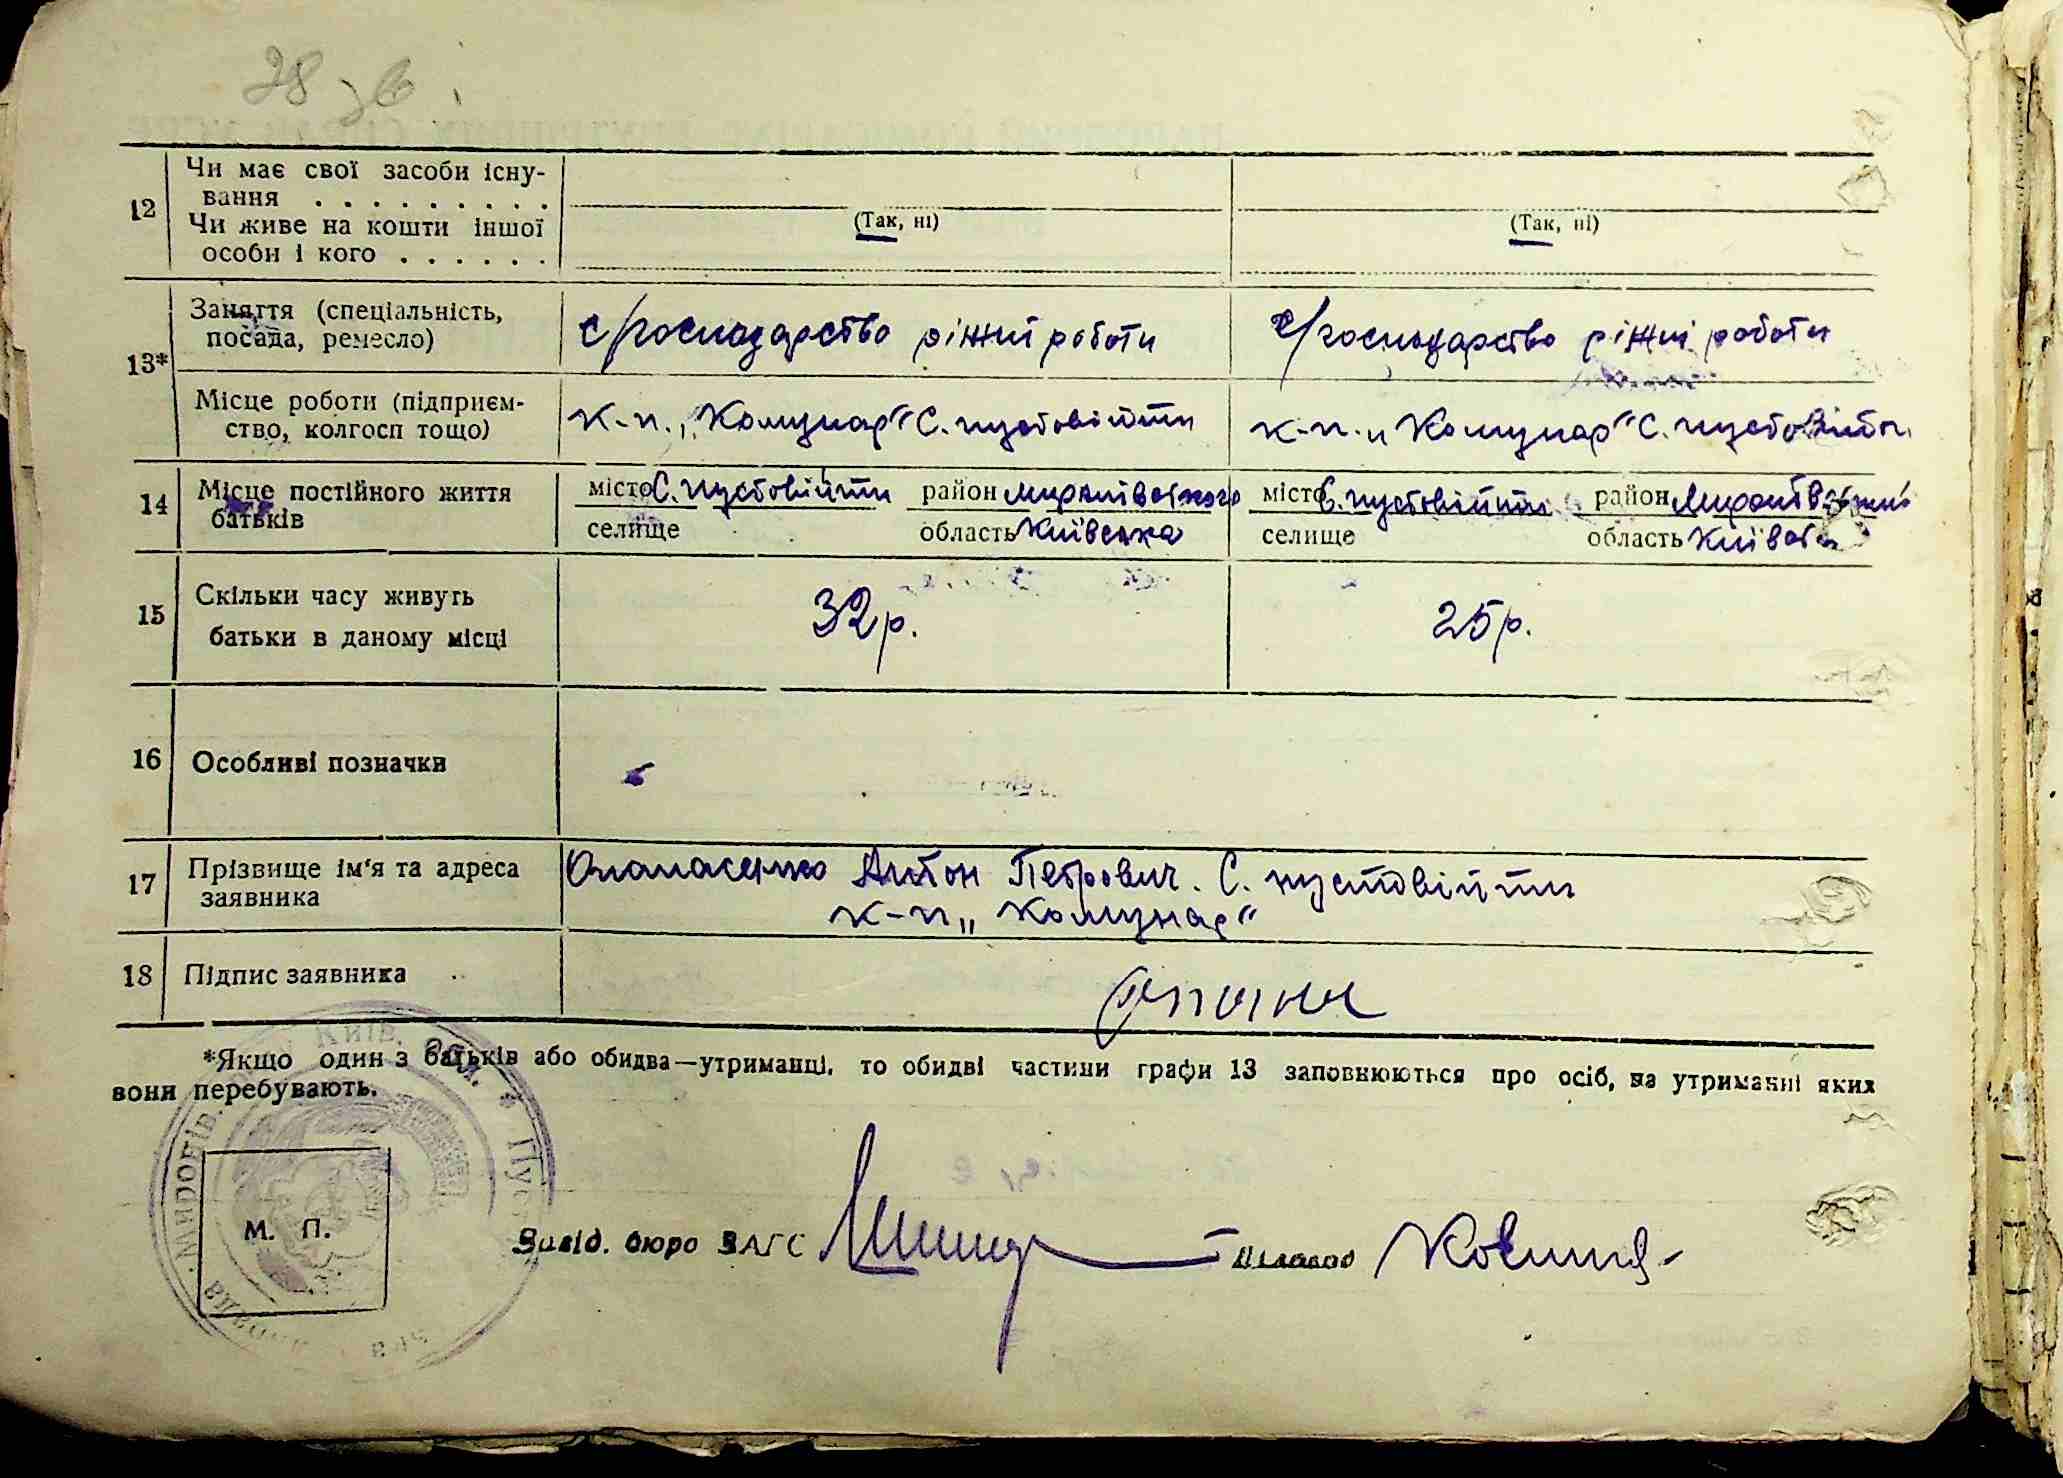 28 зв.
12 Чи має свої засоби існу-
вання . . . . . . . . .
Чи живе на кошти іншої
особи і кого . . . . . .
(Так, ні) (Так, ні)
13* Заняття (спеціальність,
посада, ремесло)
с/господарство ріжні роботи с/господарство ріжні роботи
Місце роботи (підприєм-
ство, колгосп тощо)
к-п. „Комунар" С. пустовійти к-п. „Комунар" С. пустовійти
14 Місце постійного життя
батьків
місто С. пустовійти район Миронівського місто С. пустовійти район
селище область Київська селище область Київська
15 Скільки часу живуть
батьки в даному місці
32 р. 25 р.
16 Особливі позначки
17 Прізвище ім'я та адреса
заявника
Опанасенко Антон Петрович. С. пустовійти
к-п „Комунар"
18 Підпис заявника
*Якщо один з батьків або обидва—утриманці, то обидві частини графи 13 заповнюються про осіб, на утриманні яких
вони перебувають.
Київ. обл. * Пус
Миронів.
М. П.
Завід. бюро ЗАГС Діловод